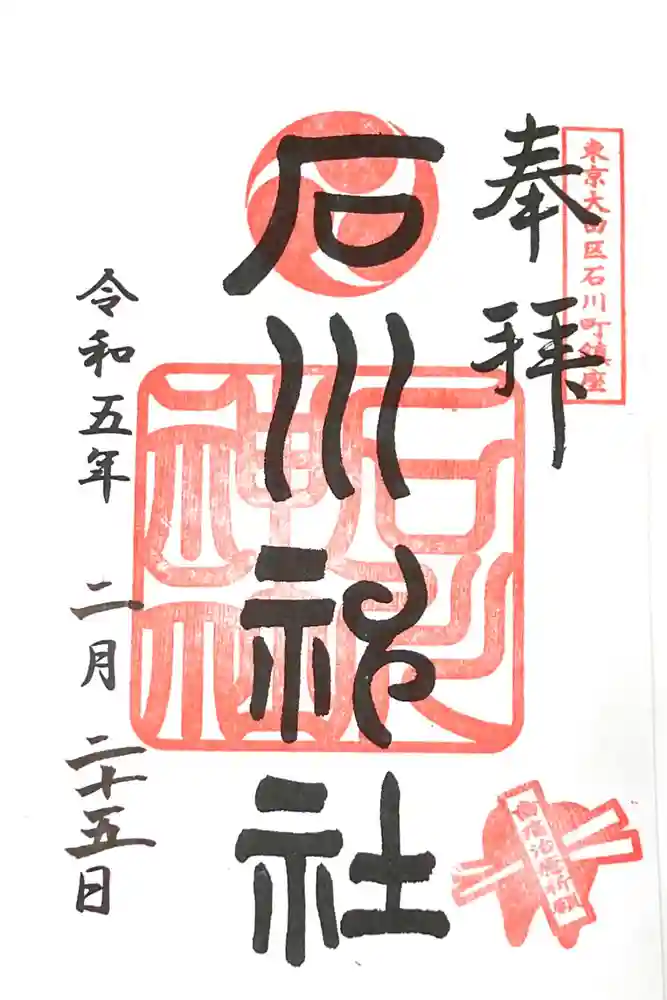 東京大田区石川町鎮座
奉拝
石川神社
石川神社
令和五年 二月 二十五日